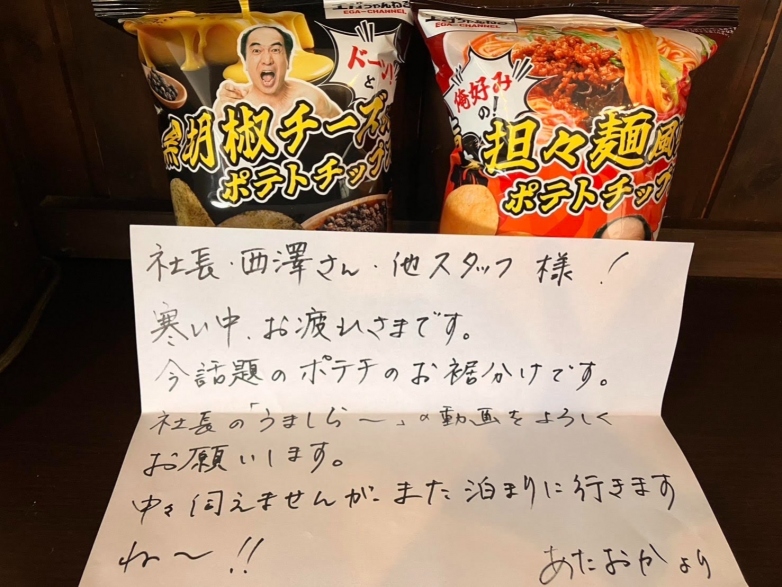 EGA-CHANNEL
EGA-CHANNEL
ドーン!
と
黒胡椒チーズ
ポテトチップ
俺好み
の!
担々麺風
ポテトチップ
社長・西澤さん・他スタッフ 様!
寒い中、お疲れさまです。
今話題のポテチのお裾分けです。
社長の「うましら〜」の動画をよろしく
お願いします。
中々伺えませんが、また泊まりに行きます
ね〜!!
あたおか より